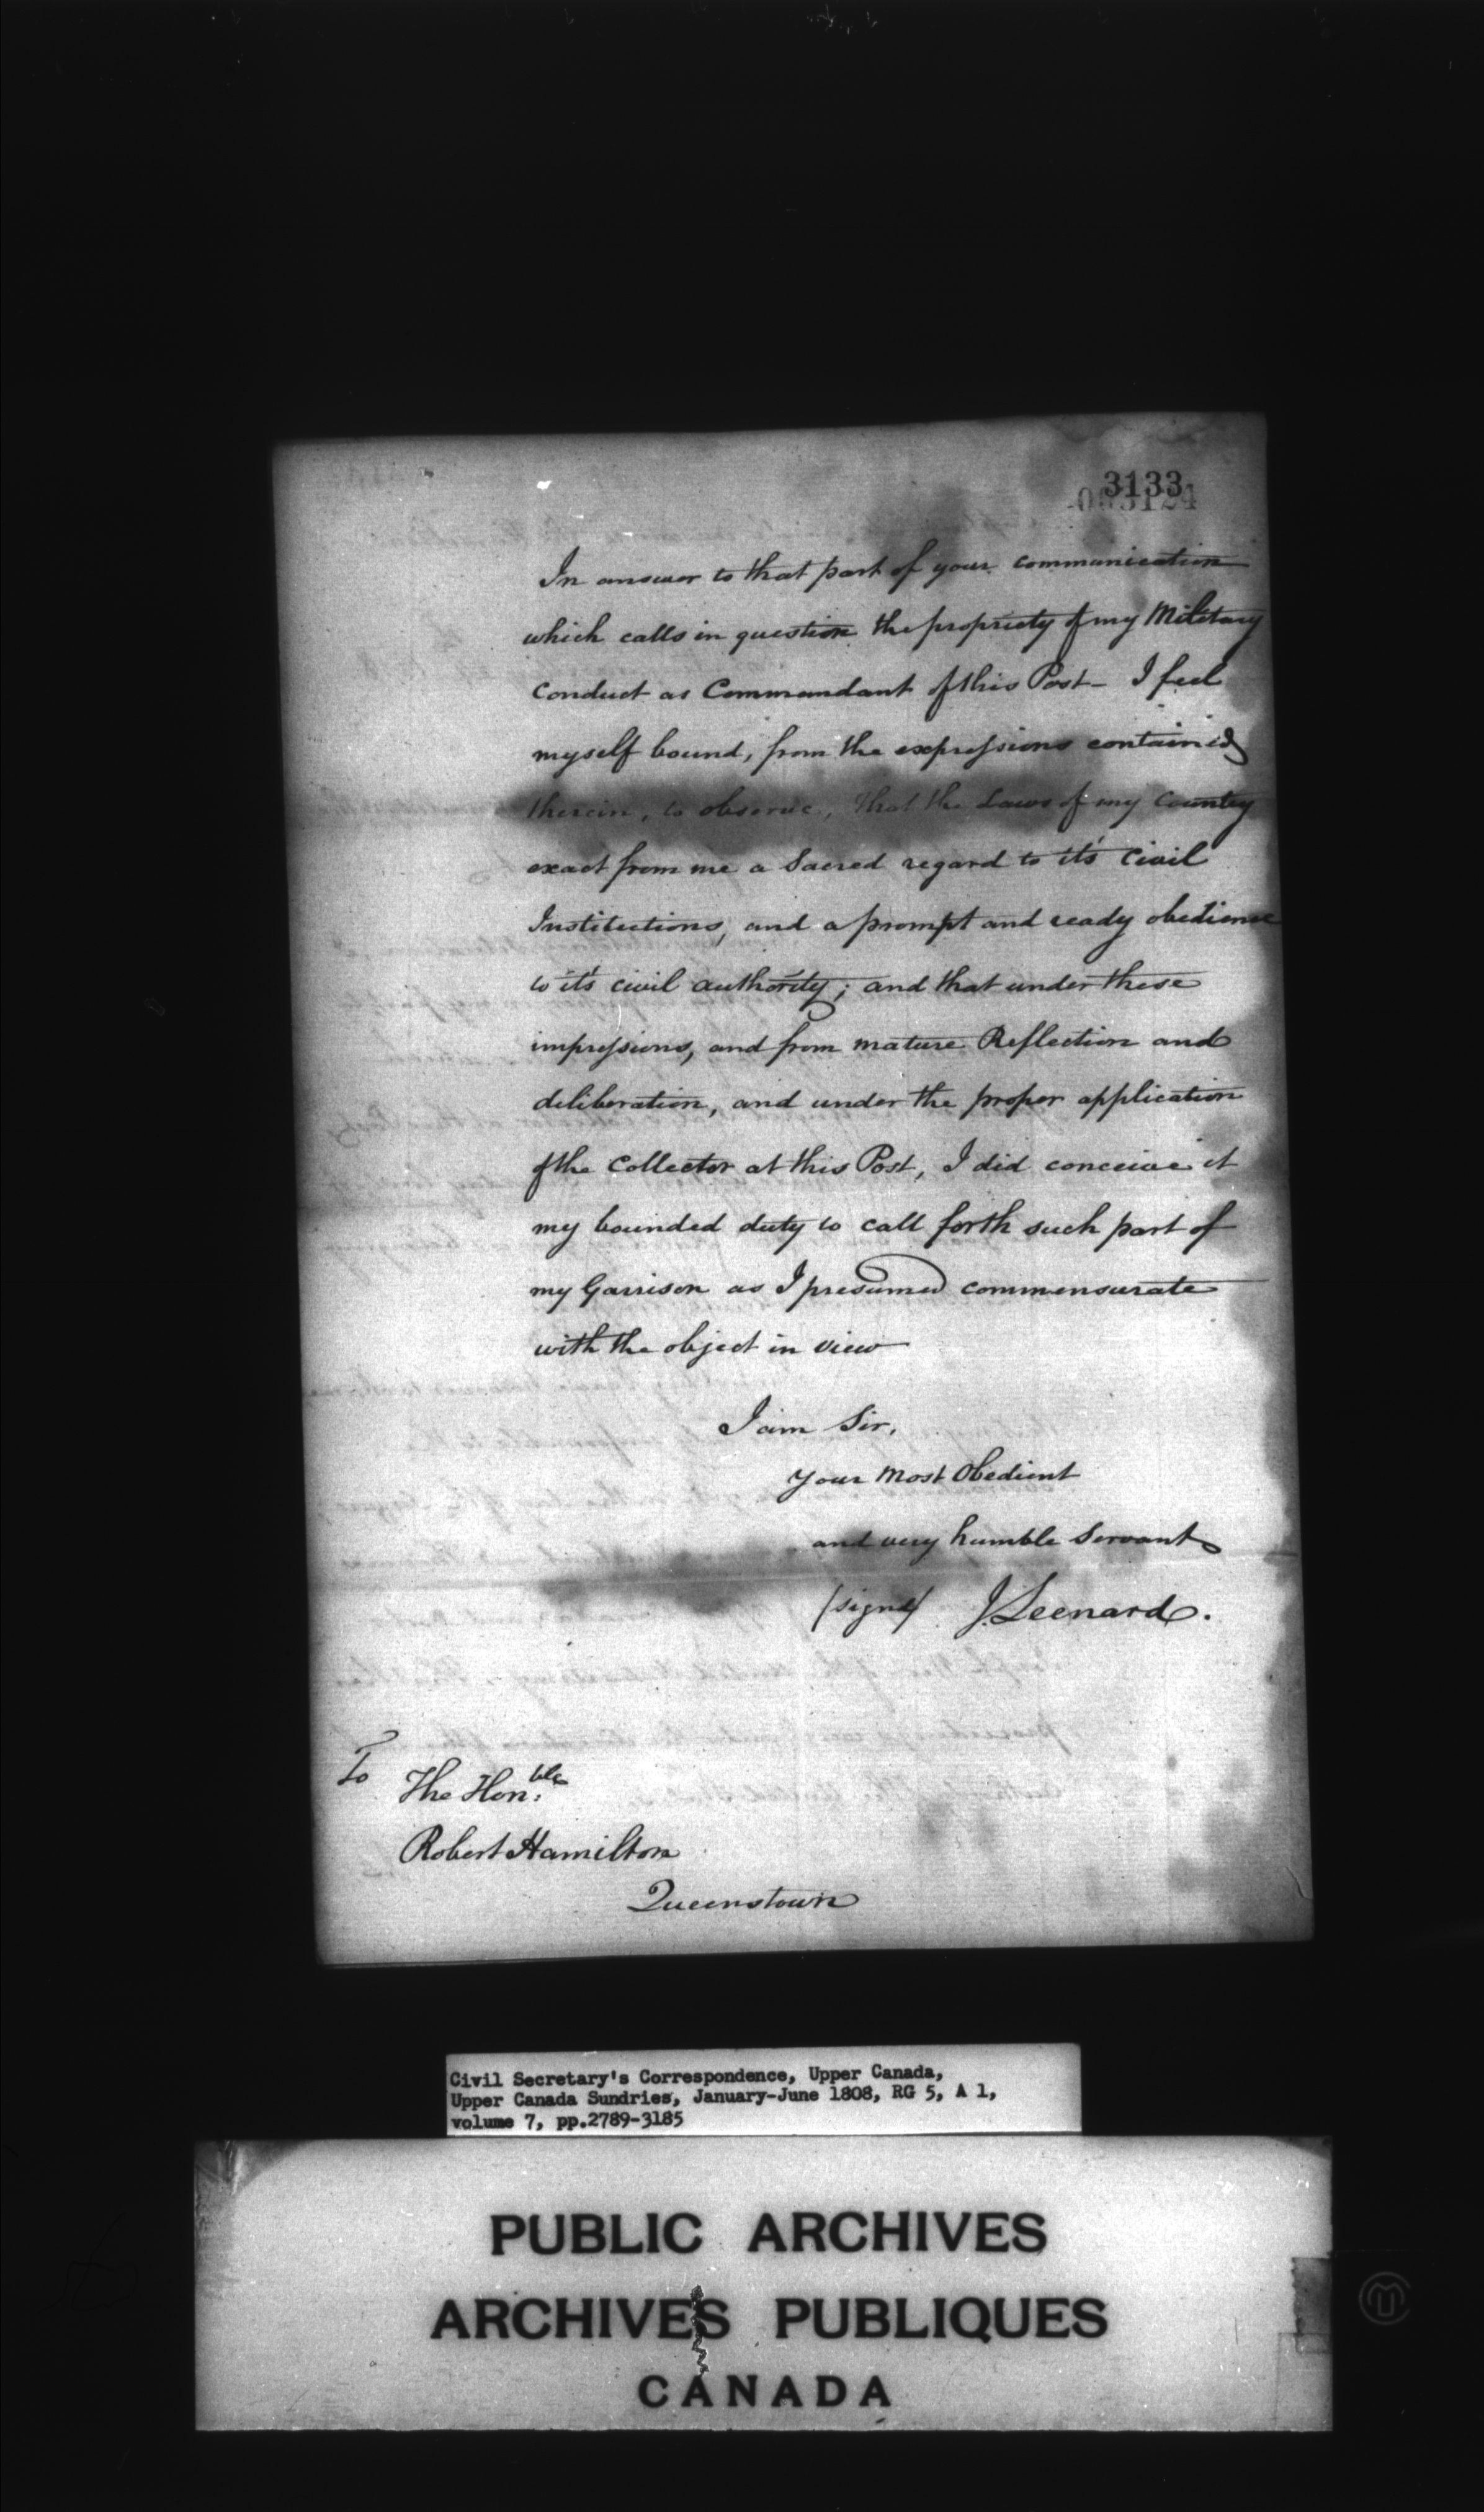 3133
003124
In answer to that part of your communication
which calls in question the propriety of my Military
conduct as Commandant of this Post - I feel
myself bound, from the expressions contained
therein, to observe, that the Laws of my Country
exact from me a Sacred regard to it's Civil
Institutions, and a prompt and ready obedience
to it's civil authority; and that under these
impressions, and from mature Reflection and
deliberation, and under the proper application
of the Collector at this Post, I did conceive it
my bounded duty to call forth such part of
my Garrison as I presumed commensurate
with the object in view
I am Sir,
your Most Obedient
and very humble Servant
/signd/ J. Leenard.
To
The Hon:ble
Robert Hamilton
Queenstown
Civil Secretary's Correspondence, Upper Canada,
Upper Canada Sundries, January-June 1808, RG 5, A 1,
volume 7, pp.2789-3185
PUBLIC ARCHIVES
ARCHIVES PUBLIQUES
CANADA